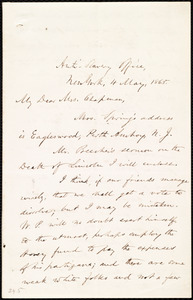 Anti-Slavery Office,
New York, 4 May, 1865
My Dear Mrs. Chapman,
Mrs. Spring's address
is Eagleswood, Perth Amboy N. J.
Mr. Beecher's sermon on the
Death of Lincoln I will enclose.
I think, if our friends manage
wisely, that we shall get a vote to
dissolve; but I may be mistaken.
W. P. will no doubt exert himself
to the utmost, perhaps employ the
Hovey fund to pay the expenses
of his partizans; and there are some
weak white folks and not a few